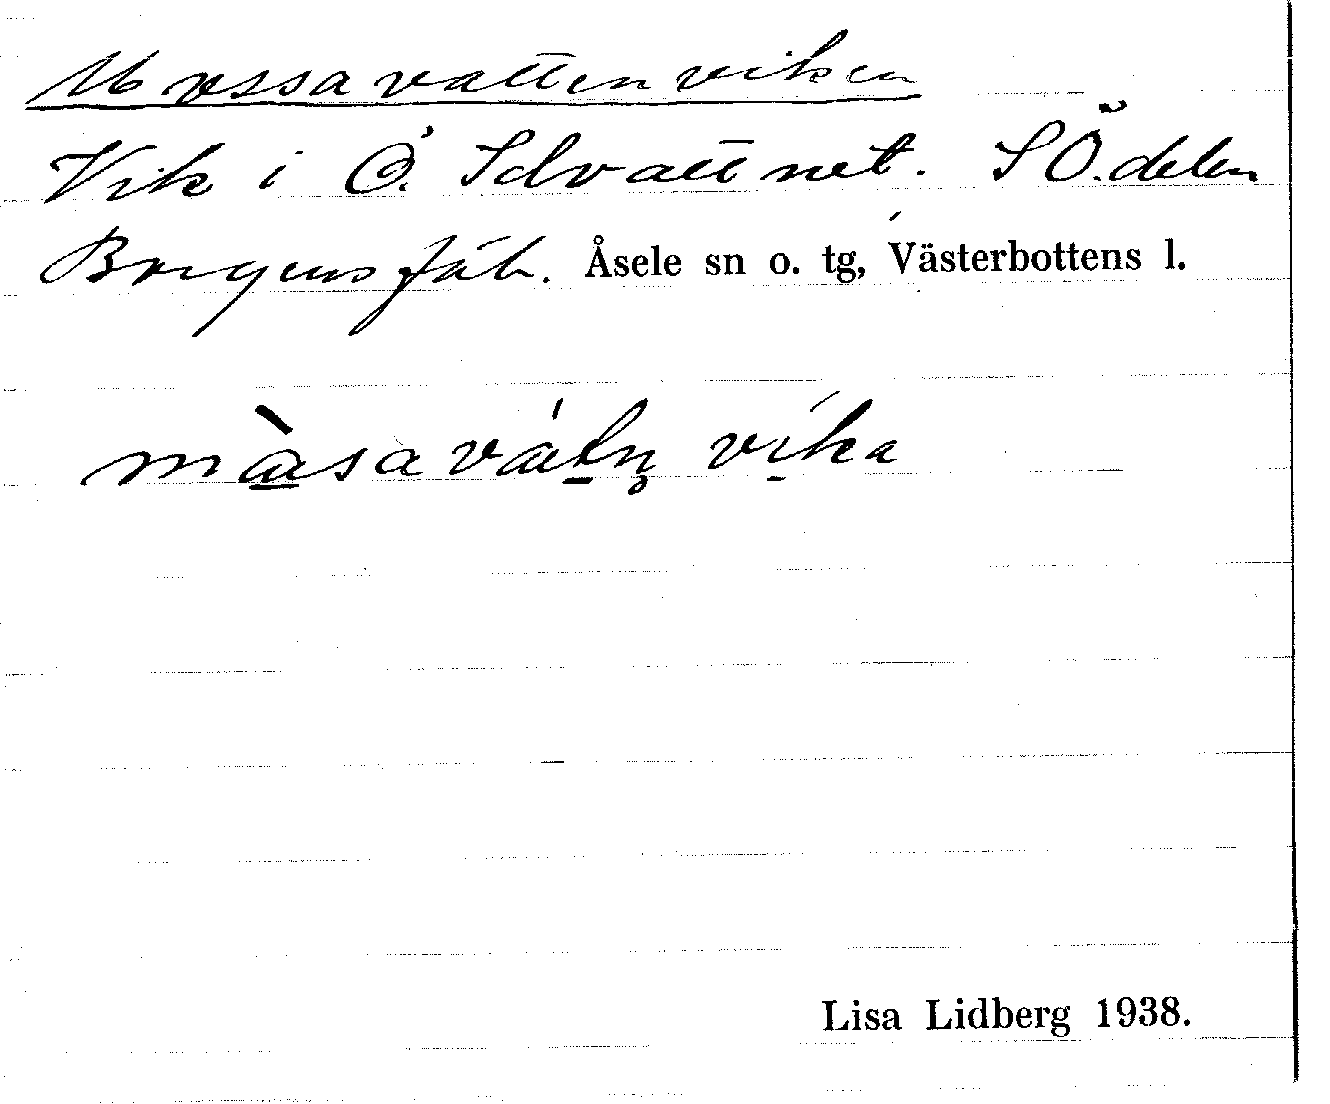 Mossavattenviken
Vik i Ö. Idvattnet. SÖ. delen
Borgensjäl. Åsele sn o. tg, Västerbottens l.
màsavátn̥ vika
Lisa Lidberg 1938.